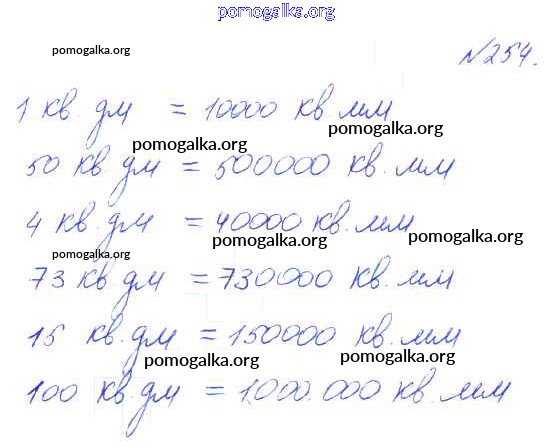 pomogalka.org
pomogalka.org
№254.
1 кв. дм = 10000 кв. мм
pomogalka.org pomogalka.org
50 кв. дм = 500000 кв. мм
4 кв. дм = 40000 кв. мм
pomogalka.org pomogalka.org
pomogalka.org
73 кв. дм = 730000 кв. мм
15 кв. дм = 150000 кв. мм
pomogalka.org pomogalka.org
100 кв. дм = 1000.000 кв. мм